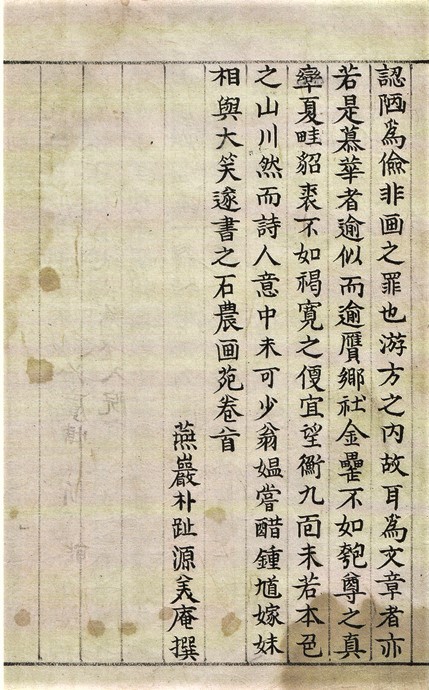 認陋為儉非画之罪也游方之內故耳為文章者亦
若是慕華者逾似而逾贋鄉社金罍不如匏尊之真
犖夏畦貂裘不如褐寬之便宜望衡九面未若本邑
之山川然而詩人意中未可少翁媼嘗醋鍾馗嫁妹
相與大笑遂書之石農画苑卷首
燕巖朴趾源美庵撰